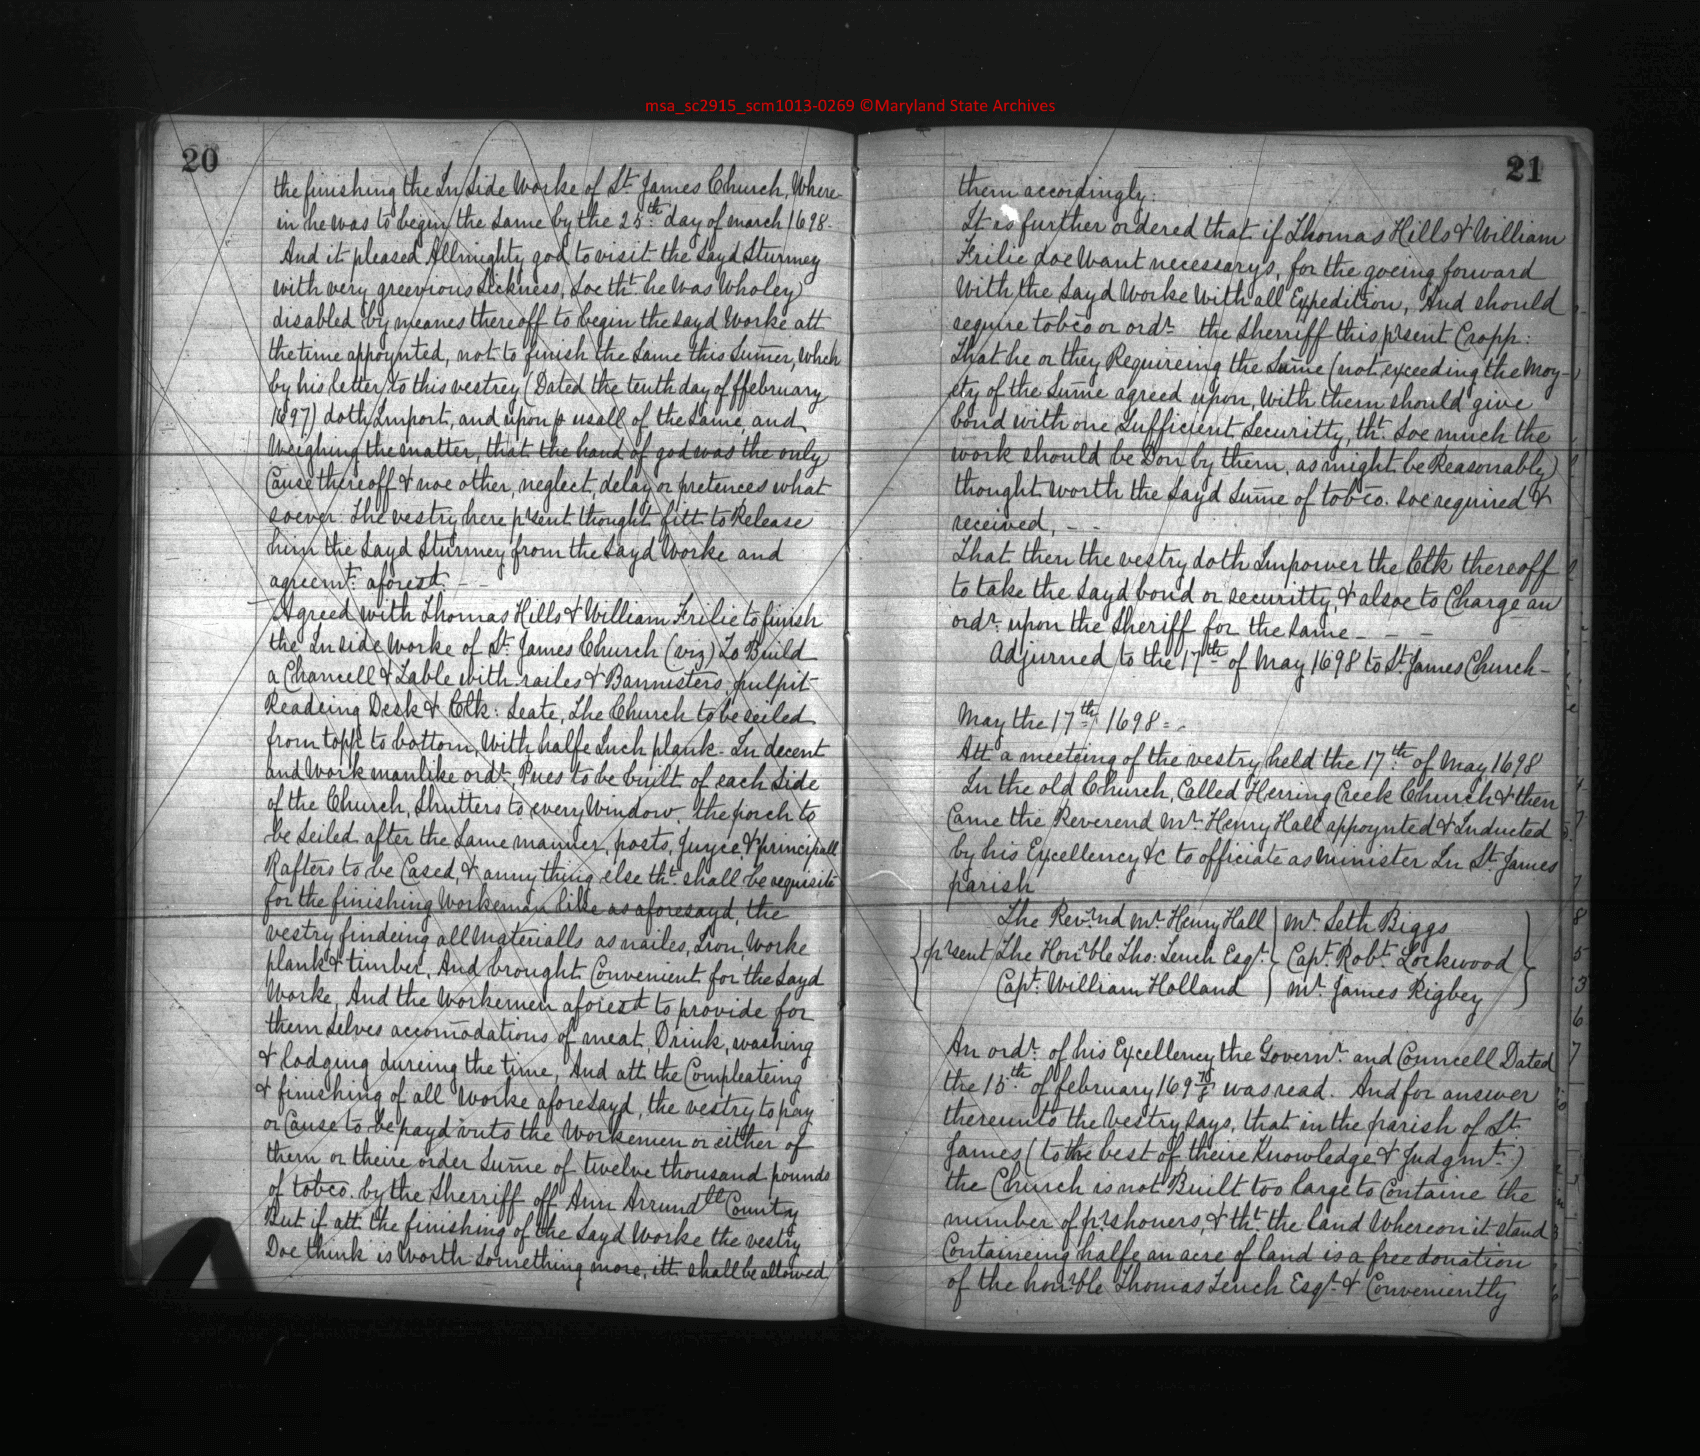 msa_sc2915_scm1013-0269 ©Maryland State Archives
20
the finishing the In Side Worke of St. James Church, Where-
in he was to begin the Same by the 25th day of march 1698.
And it pleased Allmighty god to visit the Sayd Sturmey
with very greevious Sickness, Soe tht. he was Wholey
disabled by meanes thereoff to begin the sayd Worke att
the time appoynted, not to finish the Same this Sumer, which
by his letter to this vestrey (Dated the tenth day of ffebruary
1697) doth Import, and upon p usall of the Same and
Weighing the matter, that the hand of god was the only
Cause thereoff & noe other, neglect, delay or pretences what
soever. The vestry here prsent thought fitt to Release
him the Sayd Sturmey from the Sayd Worke and
agreemt. aforesd. - -
Agreed with Thomas Hills & William Frilie to finish
the In side Worke of St. James Church (viz) To Build
a Chancell & Table with railes & Bannisters, pulpit
Readeing Desk & Clk: Seate, The Church to be seiled
from topp to bottom, With halfe Inch plank - In decent
and Workmanlike ordr. Pues to be built of each Side
of the Church, Shutters to every Window. the porch to
be Seiled after the Same manner, posts, Juyce, & principall
Rafters to be Cased, & anny thing else tht. shall be requisite
for the finishing Workeman like as aforesayd, the
vestry findeing all Materialls as nailes, Iron, Worke
plank & timber, And brought Convenient for the Sayd
Worke, And the Workemen aforesd to provide for
them selves accomodations of meat, Drink, washing
& lodging dureing the time, And att the Compleateing
& finishing of all Worke aforesayd, the vestry to pay
or Cause to be payd unto the Workemen or either of
them or theire order Sume of twelve thousand pounds
of tobco. by the Sherriff off Ann Arrundll County
But if att the finishing of the Sayd Worke the vestry
Doe think is Worth Something more, itt shall be allowed
21
them accordingly.
It is further ordered that if Thomas Hills & William
Frilie doe Want necessarys, for the goeing forward
With the Sayd Worke With all Expedition, And should
require tobco or ordr. the Sherriff this prsent Cropp:
That he or they Requireing the Same (not exceeding the Moy-
ety of the Sume agreed upon, With them should give
bond with one Sufficient Securitty, tht. Soe much the
work should be Don by them, as might be Reasonably)
thought worth the Sayd Sume of tobco. soe required &
received, - -
That then the vestry doth Impower the Clk thereoff
to take the Sayd bond or securitty, & alsoe to Charge an
ordr. upon the Sheriff for the Same - - -
Adjurned to the 17th of May 1698 to St. James Church -
May the 17th 1698 = -
Att a meeteing of the vestry held the 17th of May 1698
In the old Church, Called Herring Creek Church & then
Came the Reverend Mr. Henry Hall appoynted & Inducted
by his Excellency &c to officiate as Minister In St. James
parish
The Revrnd Mr. Henry Hall Mr. Seth Biggs
prsent The Honrble Tho: Tench Esqr. Capt. Robt. Lockwood
Capt. William Holland Mr. James Rigbey
An ordr. of his Excellency the Governr. and Councell Dated
the 15th of february 1697/8 was read. And for answer
thereunto the Vestry says, that in the parish of St.
James (to the best of theire Knowledge & Judgmt.)
the Church is not Built too large to Containe the
number of prshoners, & tht. the land Whereon it stand
Containeing halfe an acre of land is a free donation
of the honrble Thomas Tench Esqr. & Conveniently